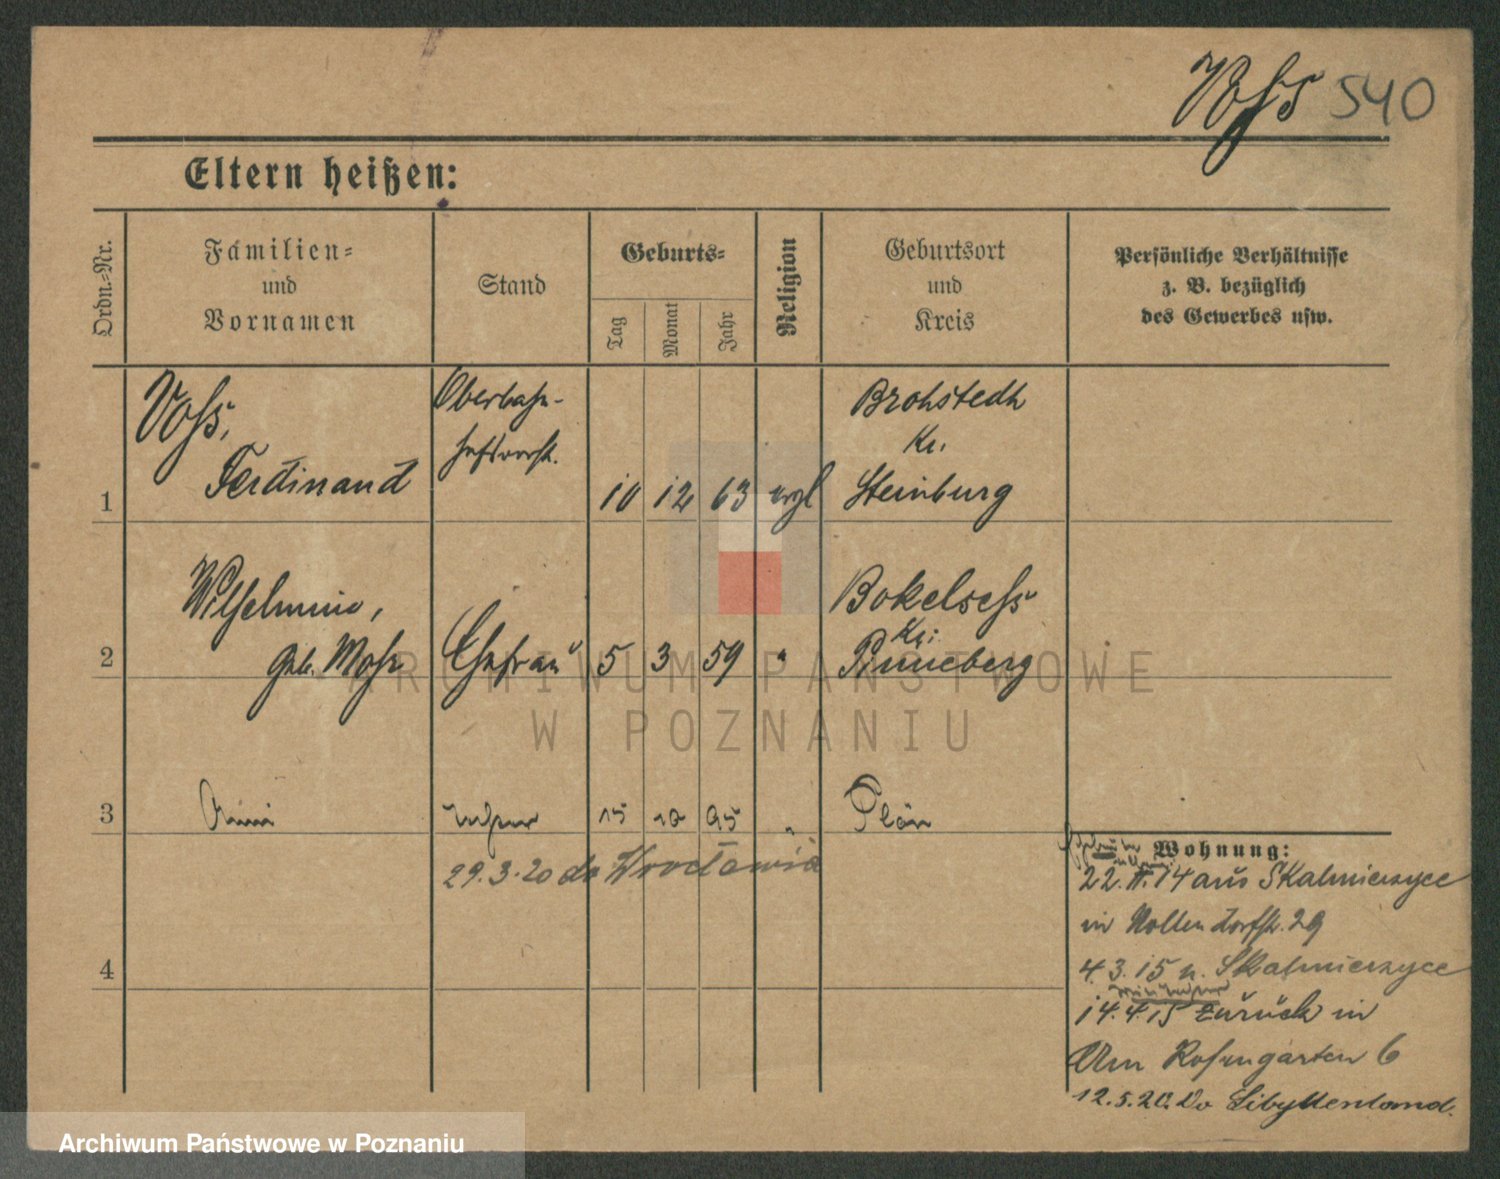 Voß 540
Eltern heißen:
Ordn.-Nr.
Familien-
und
Vornamen
Stand
Geburts-
Tag
Monat
Jahr
Religion
Geburtsort
und
Kreis
Persönliche Verhältnisse
z. B. bezüglich
des Gewerbes usw.
1
Voß,
Ferdinand
Oberbahn-
hofsvorst.
10 12 63 evgl
Brohstedt
Kr.
Steinburg
2
Wilhelmine,
geb. Mohr
Ehefrau
5 3 59 "
Bokelseß
Kr.
Pinneberg
3
15 10 95 "
Plön
29.3.20 do Wrocławia
4
Wohnung:
22. 14 aus Skalmierzyce
in Nollendorfstr. 29
4.3.15 n. Skalmierzyce
14.4.15 zurück in
Am Rosengarten 6
12.5.20. do Sibyllenland.
ARCHIWUM PAŃSTWOWE
W POZNANIU
Archiwum Państwowe w Poznaniu